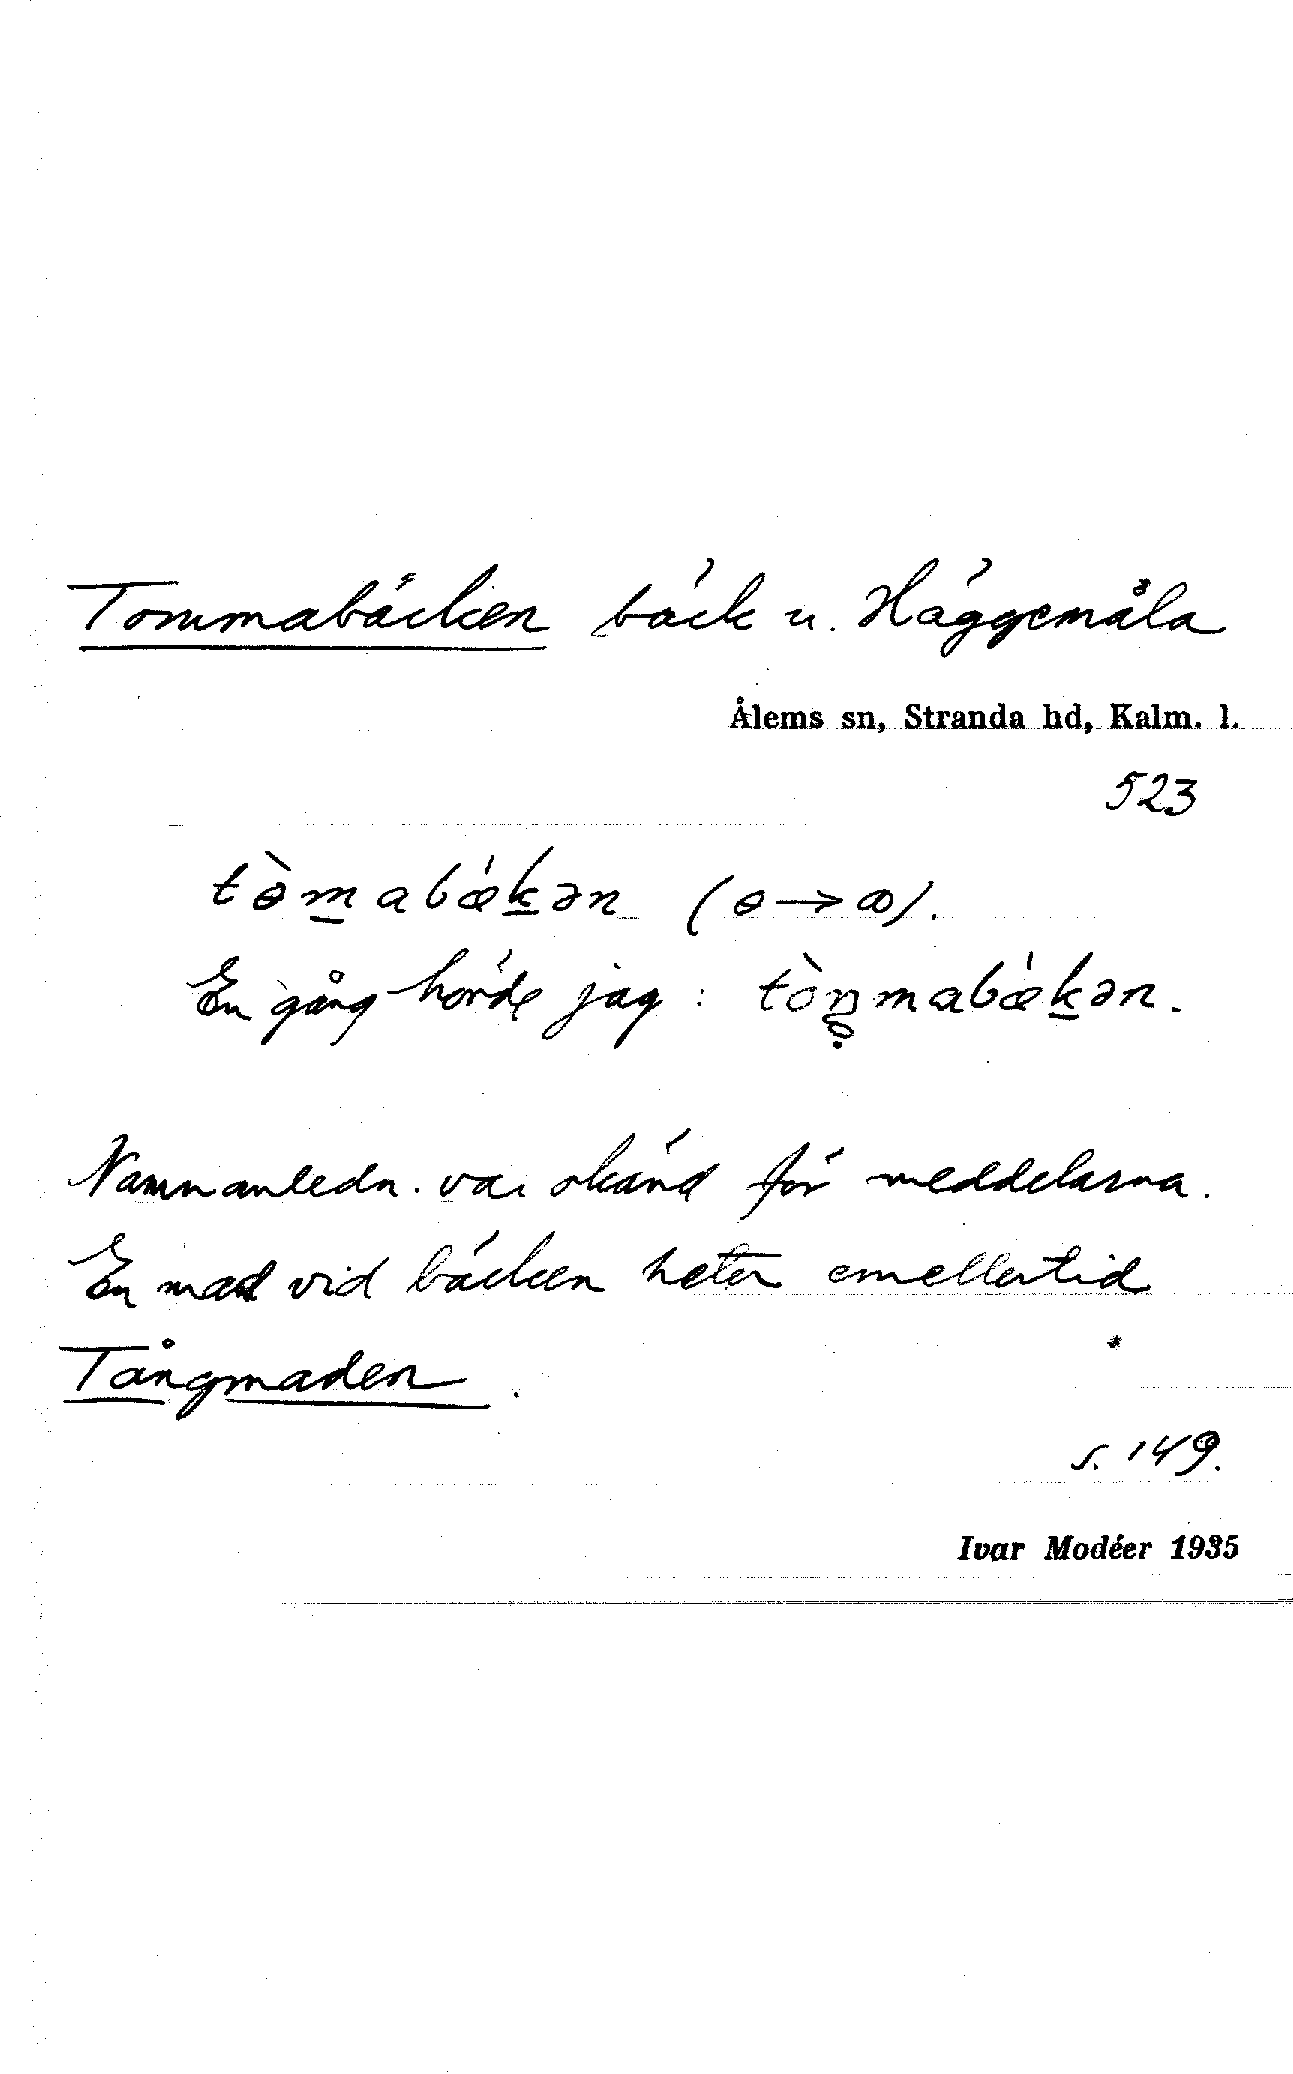 Tommabäcken bäck u. Häggemåla
Ålems sn, Stranda hd, Kalm. l.
523
tɵ̀m̲abǽk̲ən (ɵ→ꝏ).
En gång hörde jag: tòŋmabǽk̲ən.
Namnanledn. var okänd för meddelarna.
En mad vid bäcken heter emellertid
Tångmaden.
s. 149.
Ivar Modéer 1935